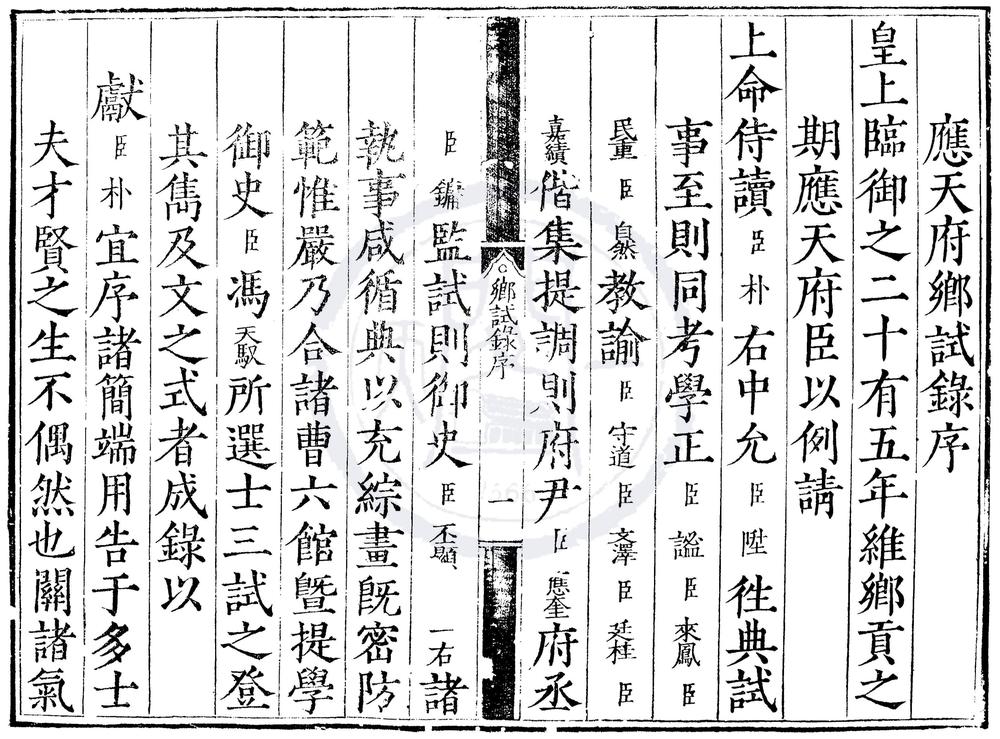 應天府鄉試錄序
皇上臨御之二十有五年維鄉貢之
期應天府臣以例請
上命侍讀臣朴右中允臣陞徃典試
事至則同考學正臣謐臣來鳳臣
民重臣自然教諭臣守道臣文澤臣廷桂臣
嘉績偕集提調則府尹臣應奎府丞
鄉試錄序 一
臣鏞監試則御史臣丕顯一右諸
執事咸循典以充綜畫既密防
範惟嚴乃合諸曹六館暨提學
御史臣馮天馭所選士三試之登
其雋及文之式者成錄以
獻臣朴宜序諸簡端用告于多士
夫才賢之生不偶然也關諸氣